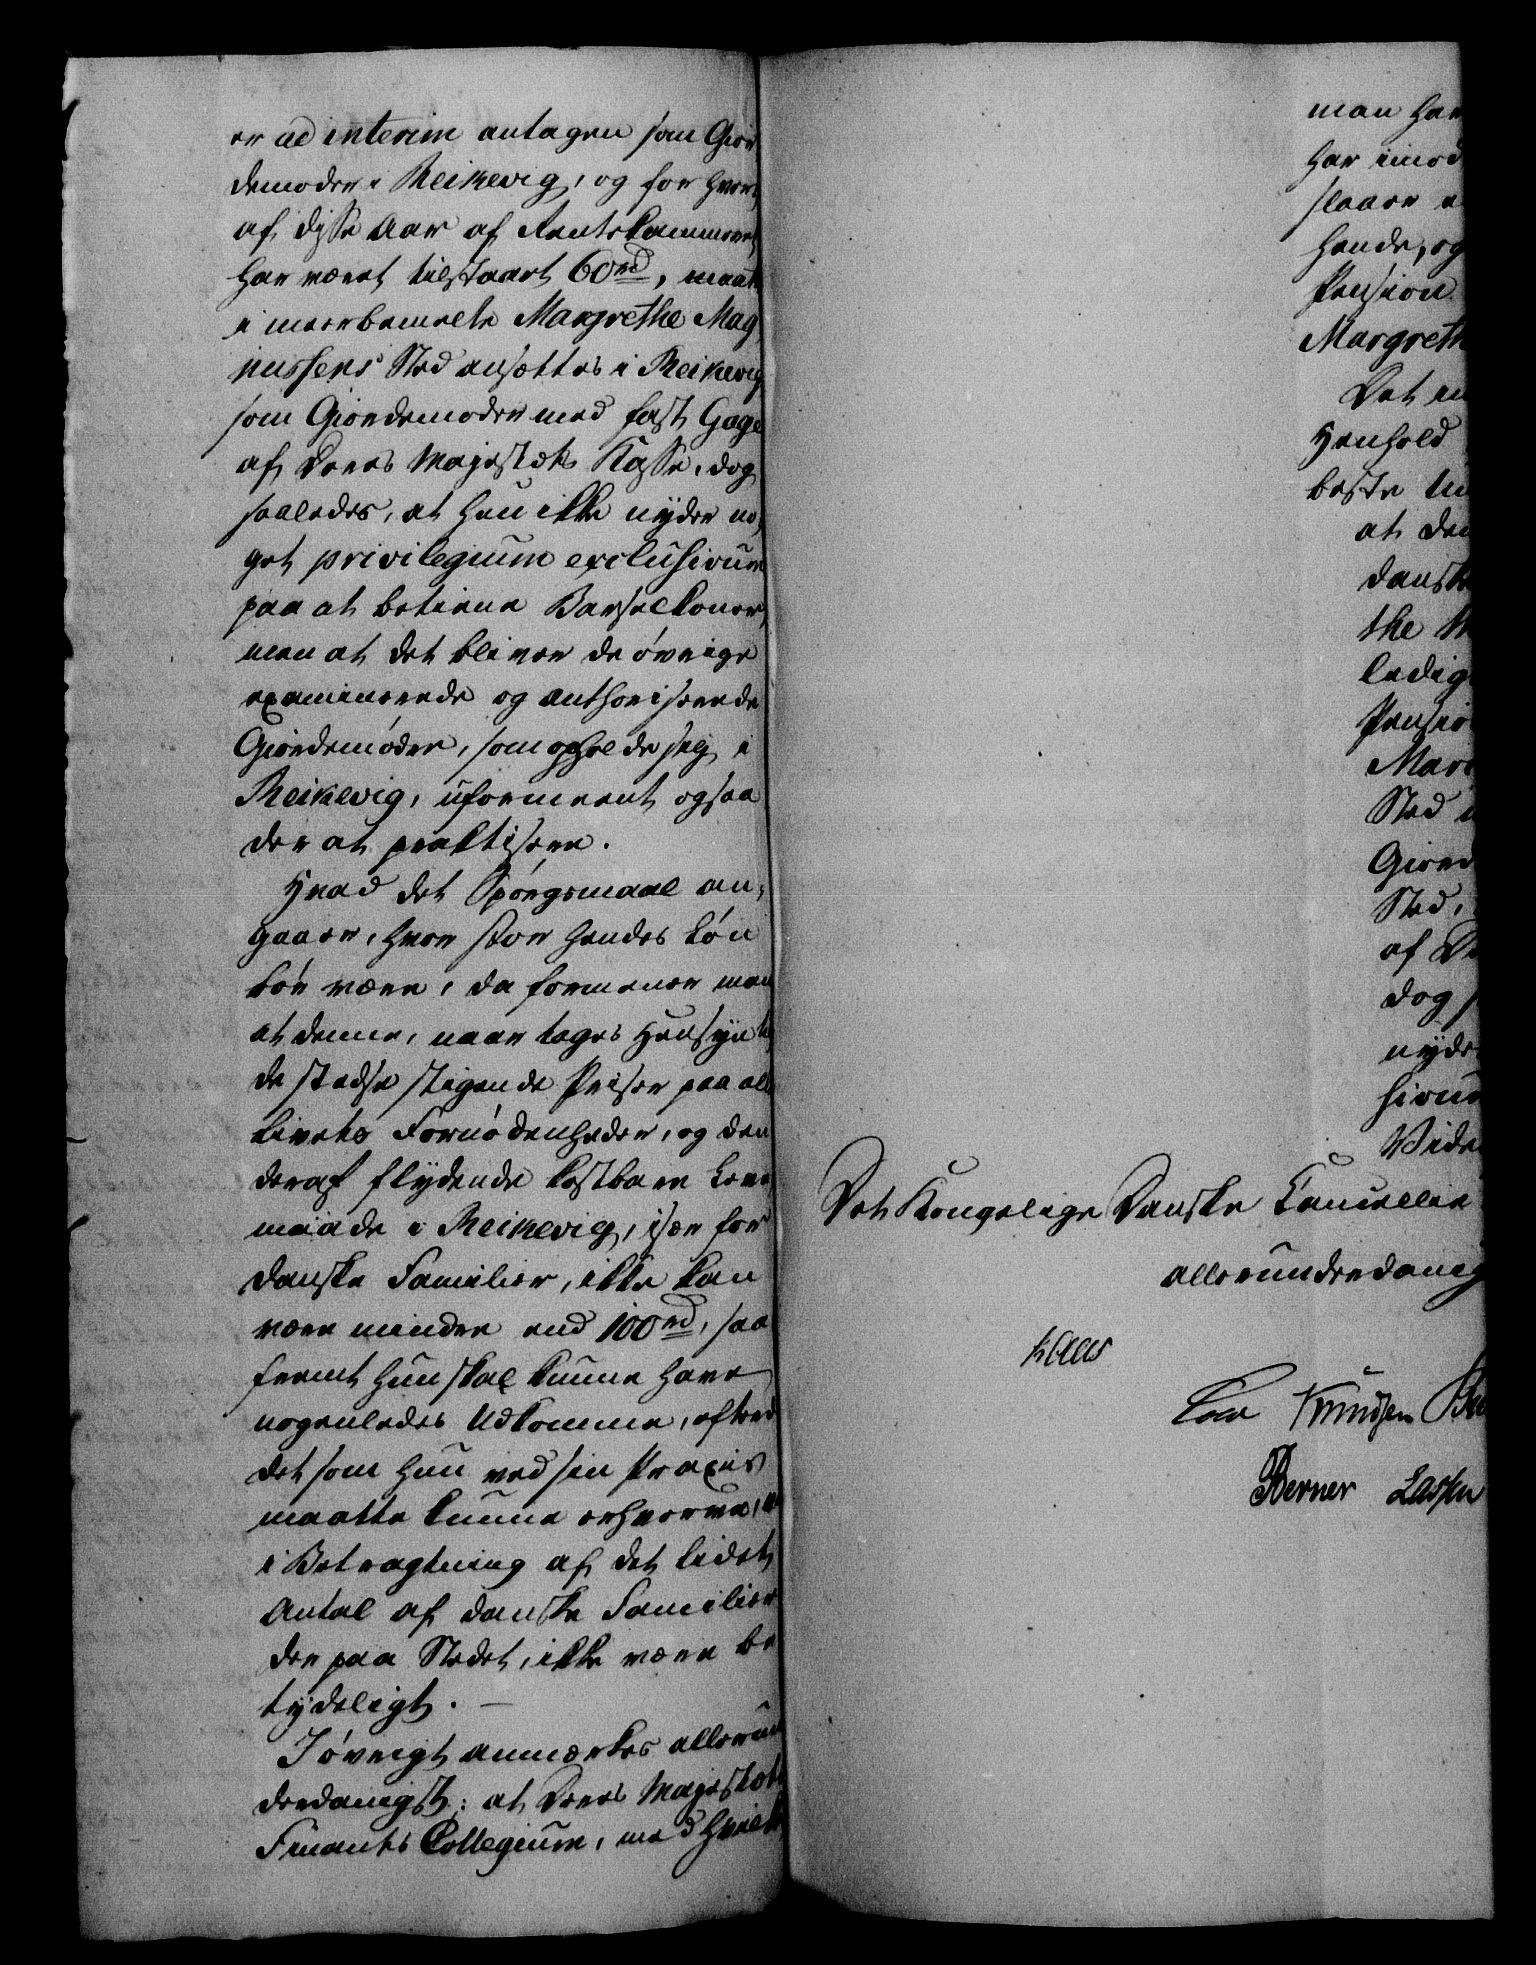 er ad interim antagen som Gior
demoder i Reikevig, og for hvert
af disse Aar af Rentekammeret
har været tilstaaet 60 rd, maatte
i meerbemelte Margrethe Mag
nussens Sted ansættes i Reikevig
som Giordemoder med fast Gage
af Deres Majestæts Kasse, dog
saaledes, at hun ikke nyder no
get privilegium exclusivum
paa at betiene Barselkoner,
men at det bliver de øvrige
examinerede og authoriserede
Giordemødre, som opholde sig i
Reikevig, uformeent ogsaa
der at praktisere.
Hvad det Spørgsmaal an,
gaaer, hvor stor hendes Løn
bør være, da formener man
at denne, naar tages Hensyn til
de stedse stigende Priser paa alle
Livets Fornødenheder, og den
deraf flydende kostbare Leve
maade i Reikevig, især for
danske Familier, ikke kan
være mindre end 100 rd, saa
fremt hun skal kunne have
nogenledes Udkomme, efterd
det som hun ved sin Praxis
maatte kunne erhverve,
i Betragtning af det lidet
Antal af danske Familier
der paa Stedet, ikke være be
tydeligt. —
I øvrigt anmærkes allerun
derdanigst: at Deres Majestæts
Finants Collegium, med hvilk
man har
har imod
slaaer
hende, og
Pension
Margreth
Det
Henhold
beste
at
danske
the M
ledig
Pension
Mar
Sted i
Giord
Sted,
af De
dog s
nyde
sivum
Vide
Det Kongelige Danske Cancellie
allerunderdanig
Kaas
Knudsen
Berner Lassen